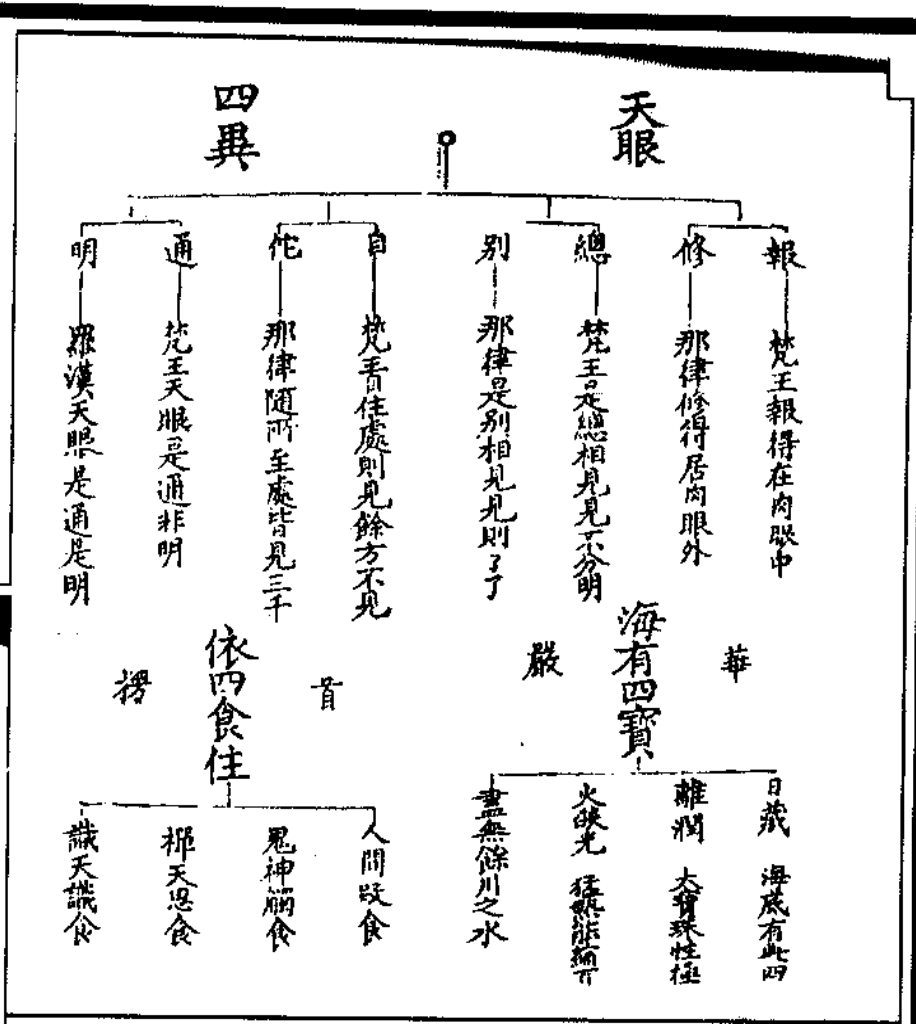 天眼
四異
報
梵王報得在肉眼中
修
那律修得居肉眼外
總
梵王是總相見見不分明
別
那律是別相見見則了了
自
梵王自住處則見餘方不見
佗
那律隨所至處皆見三千
通
梵王天眼是通非明
明
羅漢天眼是通是明
華
海有四寶
嚴
日藏 海底有此四
離潤 大寶珠性極
火𦦨光 猛熱能縮百
盡無餘川之水
首
依四食住
楞
人間段食
鬼神觸食
禪天思食
識天識食